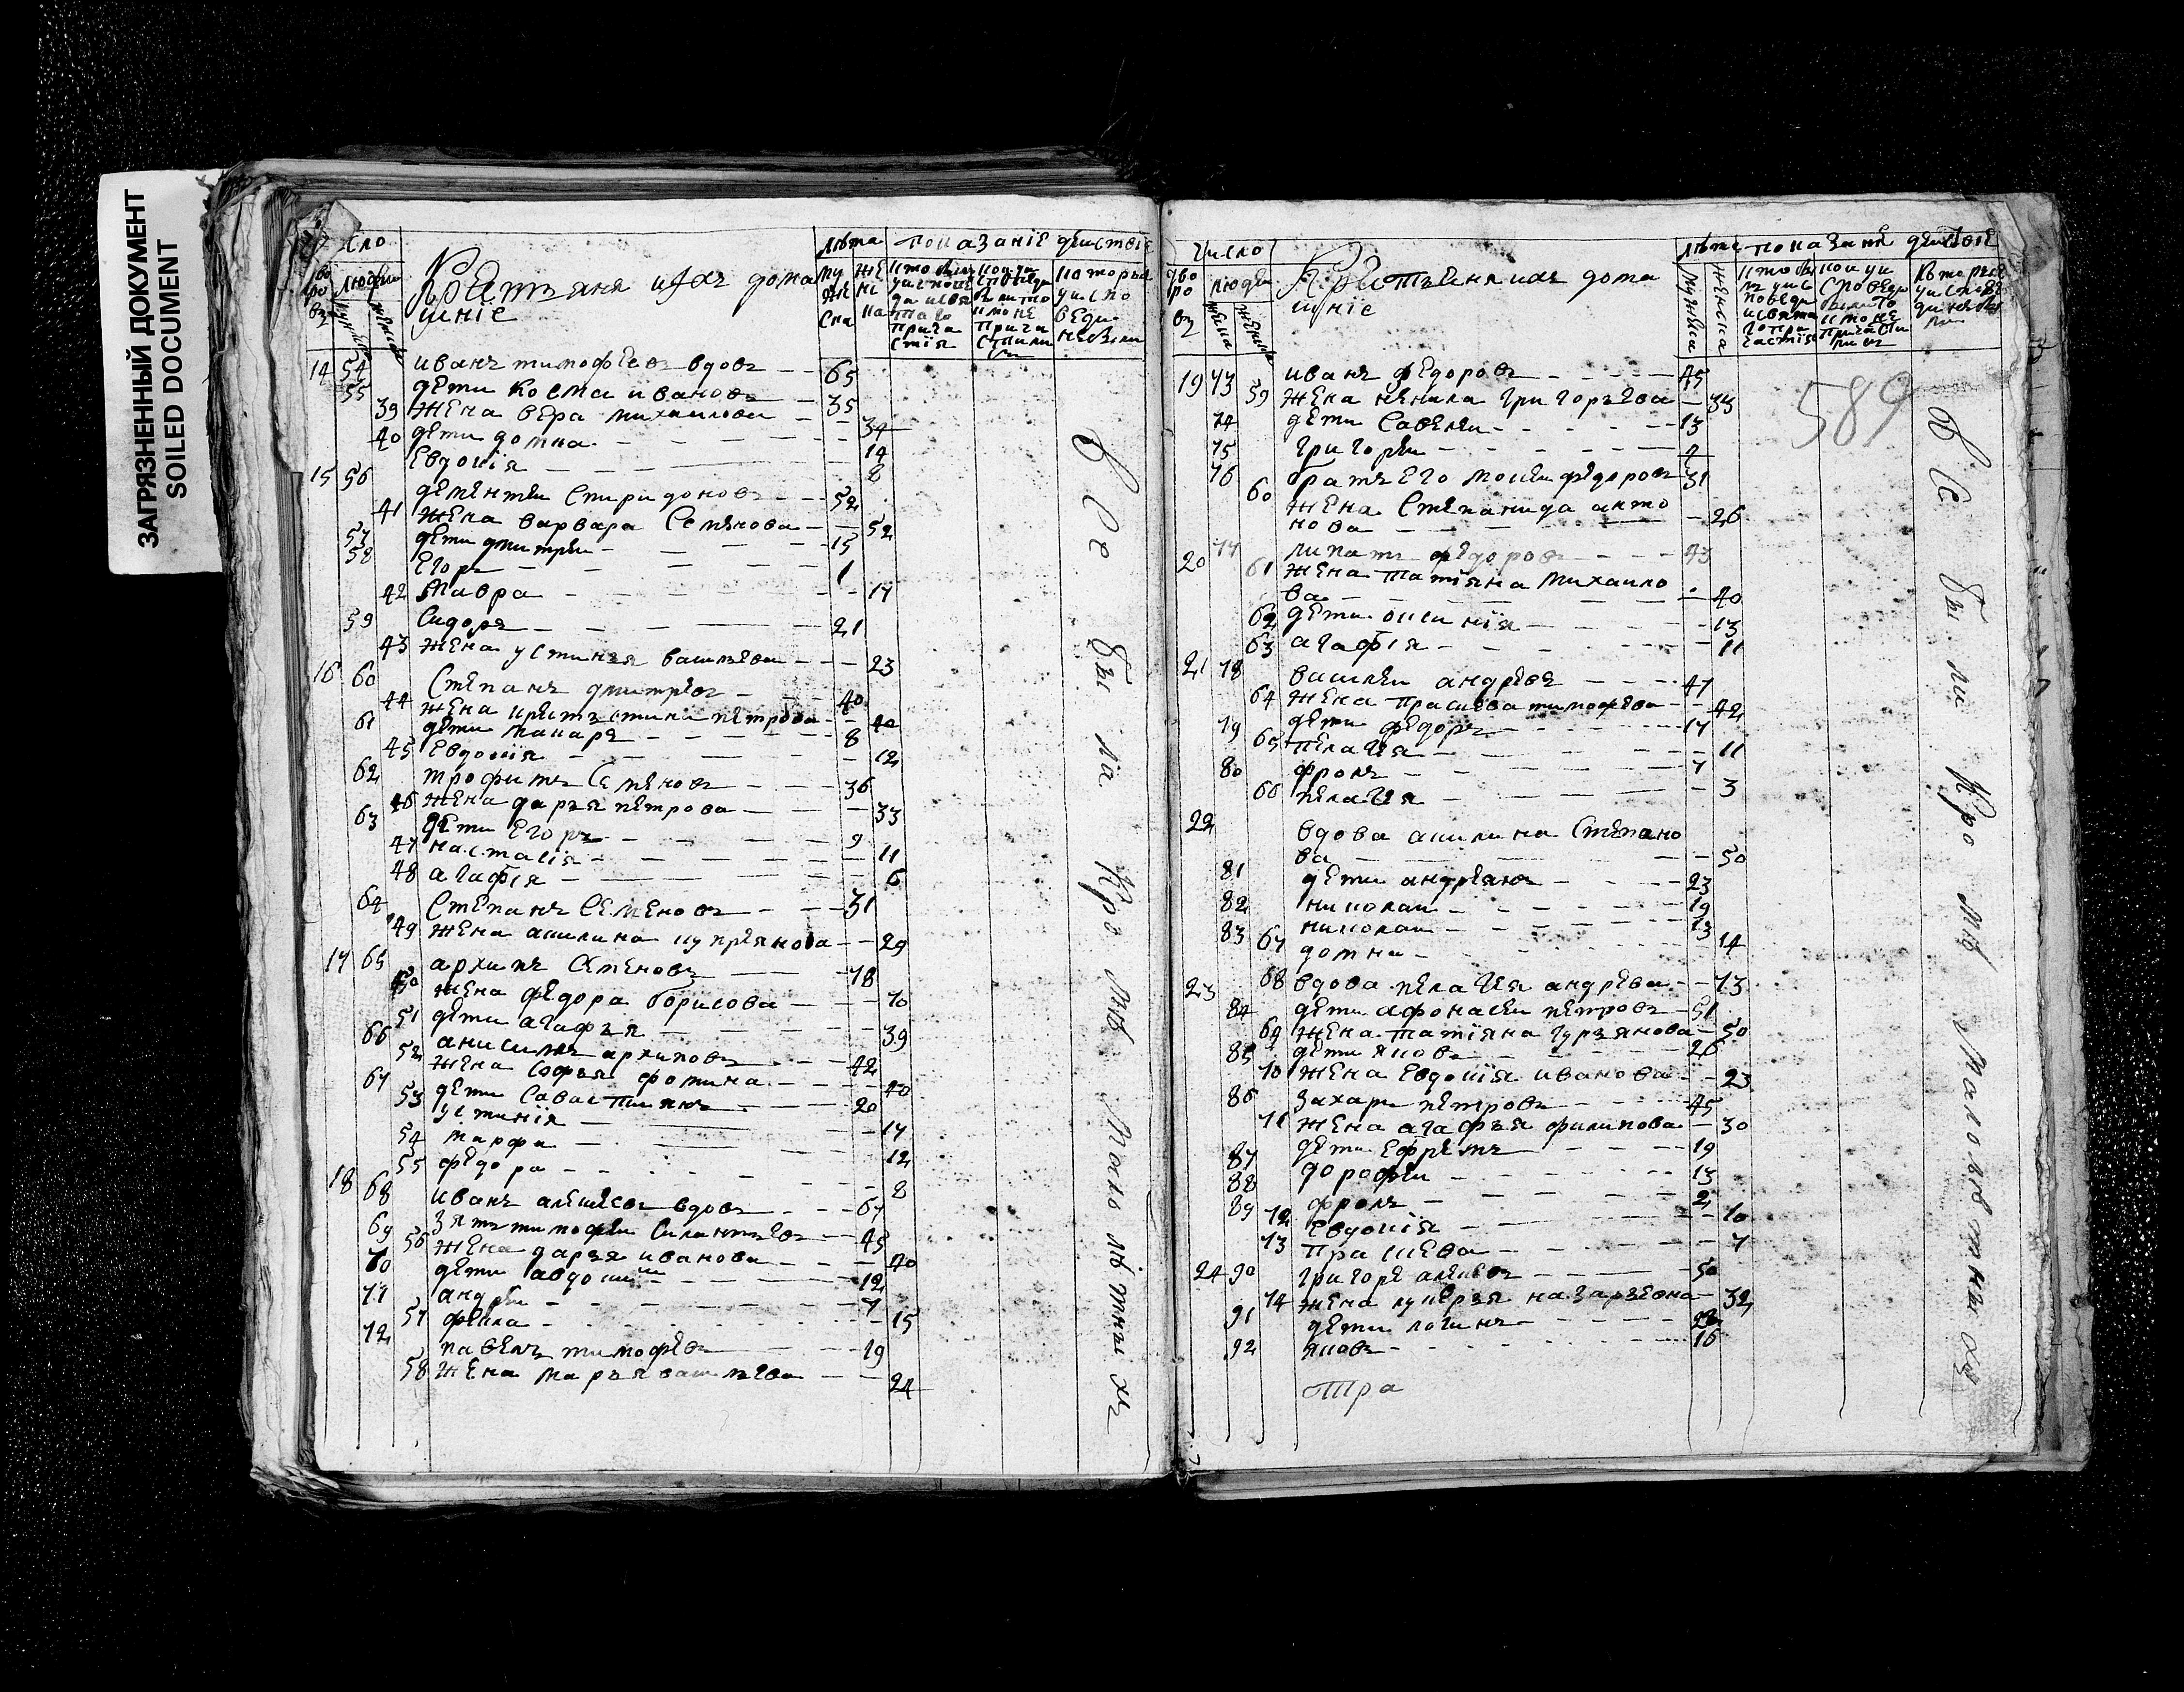 ЗАГРЯЗНЕННЫЙ ДОКУМЕНТ
SOILED DOCUMENT
число
людей
Крестьяня и ихъ дома
шніе
лѣта
показаніе действіе
14 54 иванъ тимофѣевъ вдовъ 65
55 дети косма ивановъ 35
39 жена вера михаилова 34
40 дети домна 14
Евдокія 8
15 56 дементеи спиридоновъ 52
41 жена варвара семенова 52
57 дети дмитреи 15
58 Егоръ 1
42 Мавра 17
59 сидоръ 21
43 жена устинья васильева 23
16 60 Степанъ дмитревъ 40
44 жена крестьстина петрова 40
61 дети макаръ 8
45 Евдокія 12
62 трофимъ Семеновъ 36
46 жена дарья петрова 33
63 дети Егоръ 9
47 настасія 11
48 агафія 6
64 Степанъ Семеновъ 31
49 жена акилина купреянова 29
17 65 архипъ Семеновъ 78
50 жена федора борисова 70
51 дети агафья 39
66 анисимъ архиповъ 42
52 жена софья фомина 40
67 дети Савастиянъ 20
53 устинія 17
54 марфа 12
55 федора 8
18 68 иванъ алексевъ вдовъ 67
69 зять тимофеи силантьевъ 45
56 жена дарья иванова 40
70 дети авдоким 12
71 андреи 7
57 фекла 15
72 павелъ тимофевъ 19
58 жена марья васильева 24
Все были Кромѣ Малолѣтныхъ
число
людеи
Крестьяня ихъ дома
шніе
лѣта
показанія действіе
589
19 73 иванъ федоровъ 45
59 жена ненила григорьева 33
74 дети Савелеи 13
75 григореи 2
76 братъ его мосеи федоровъ 31
60 жена Степанида анто
нова 26
20 77 липатъ федоровъ 43
61 жена татіяна михаило
ва 40
62 дети аксинія 13
63 агафія 11
21 78 василеи андреевъ 47
64 жена прасковa тимофева 42
79 дети федоръ 17
65 пелагея 11
80 фролъ 7
66 пелагея 3
22 вдова акилина Степано
ва 50
81 дети андреянъ 23
82 николаи 19
83 николаи 13
67 домна 14
23 68 вдова пелагея андрева 73
84 дети афонасеи петровъ 51
69 жена татіяна гурьянова 50
85 дети яковъ 26
70 жена Евдокія иванова 23
86 захаръ петровъ 45
71 жена агафья филипова 30
87 дети Ефремъ 19
88 дорофеи 13
89 фролъ 2
72 Евдокія 10
73 праскева 7
24 90 григореи алексевъ 50
74 жена лукерья назарьевна 32
91 дети логинъ
92 яковъ 16
тра
Все были Кромѣ Малолѣтныхъ